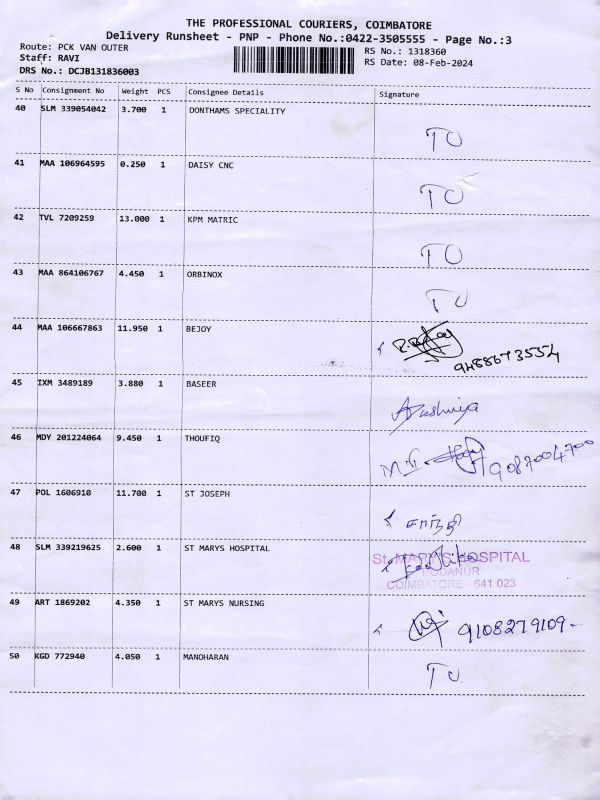 THE PROFESSIONAL COURIERS, COIMBATORE
Delivery Runsheet - PNP - Phone No.:0422-3505555 - Page No.:3
Route: PCK VAN OUTER
RS No.: 1318360
Staff: RAVI
RS Date: 08-Feb-2024
DRS No.: DCJB131836003
S No Consignment No Weight PCS Consignee Details Signature
40 SLM 339054042 3.700 1 DONTHAMS SPECIALITY
TU
41 MAA 106964595 0.250 1 DAISY CNC
TU
42 TVL 7209259 13.000 1 KPM MATRIC
TU
43 MAA 864106767 4.450 1 ORBINOX
TU
44 MAA 106667863 11.950 1 BEJOY
9488673554
45 IXM 3489189 3.880 1 BASEER
46 MDY 201224064 9.450 1 THOUFIQ
9087004700
47 POL 1606910 11.700 1 ST JOSEPH
சாந்தி
48 SLM 339219625 2.600 1 ST MARYS HOSPITAL
St. MARY'S HOSPITAL
COIMBATORE - 641 023
49 ART 1869202 4.350 1 ST MARYS NURSING
9108279109-
50 KGD 772940 4.050 1 MANOHARAN
TU